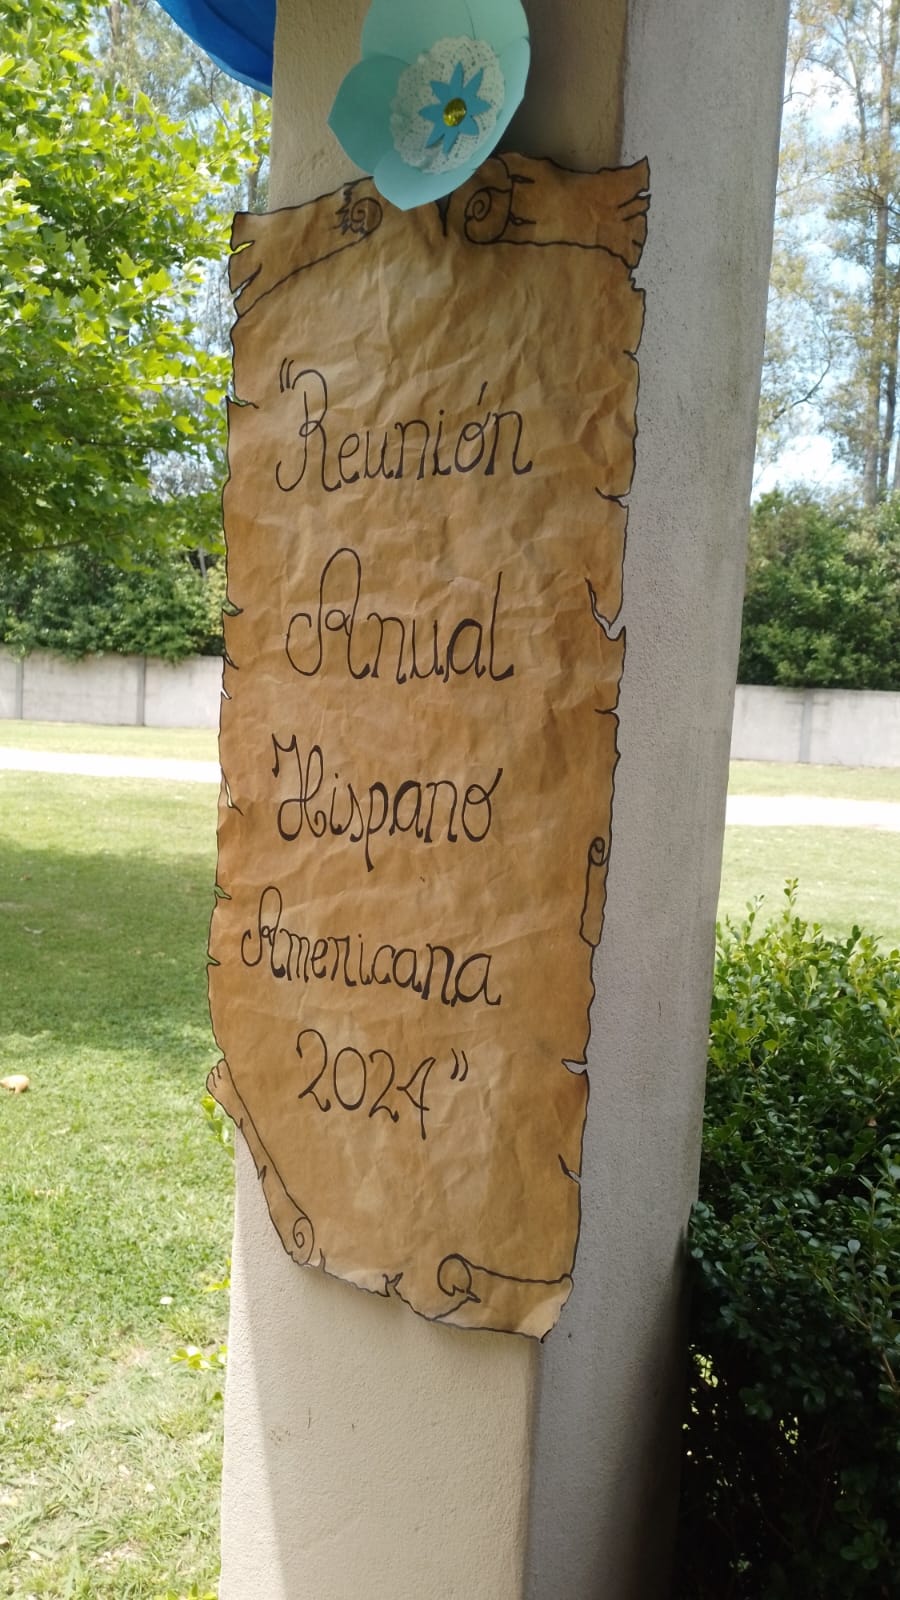 "Reunión
Anual
Hispano
Americana
2024"